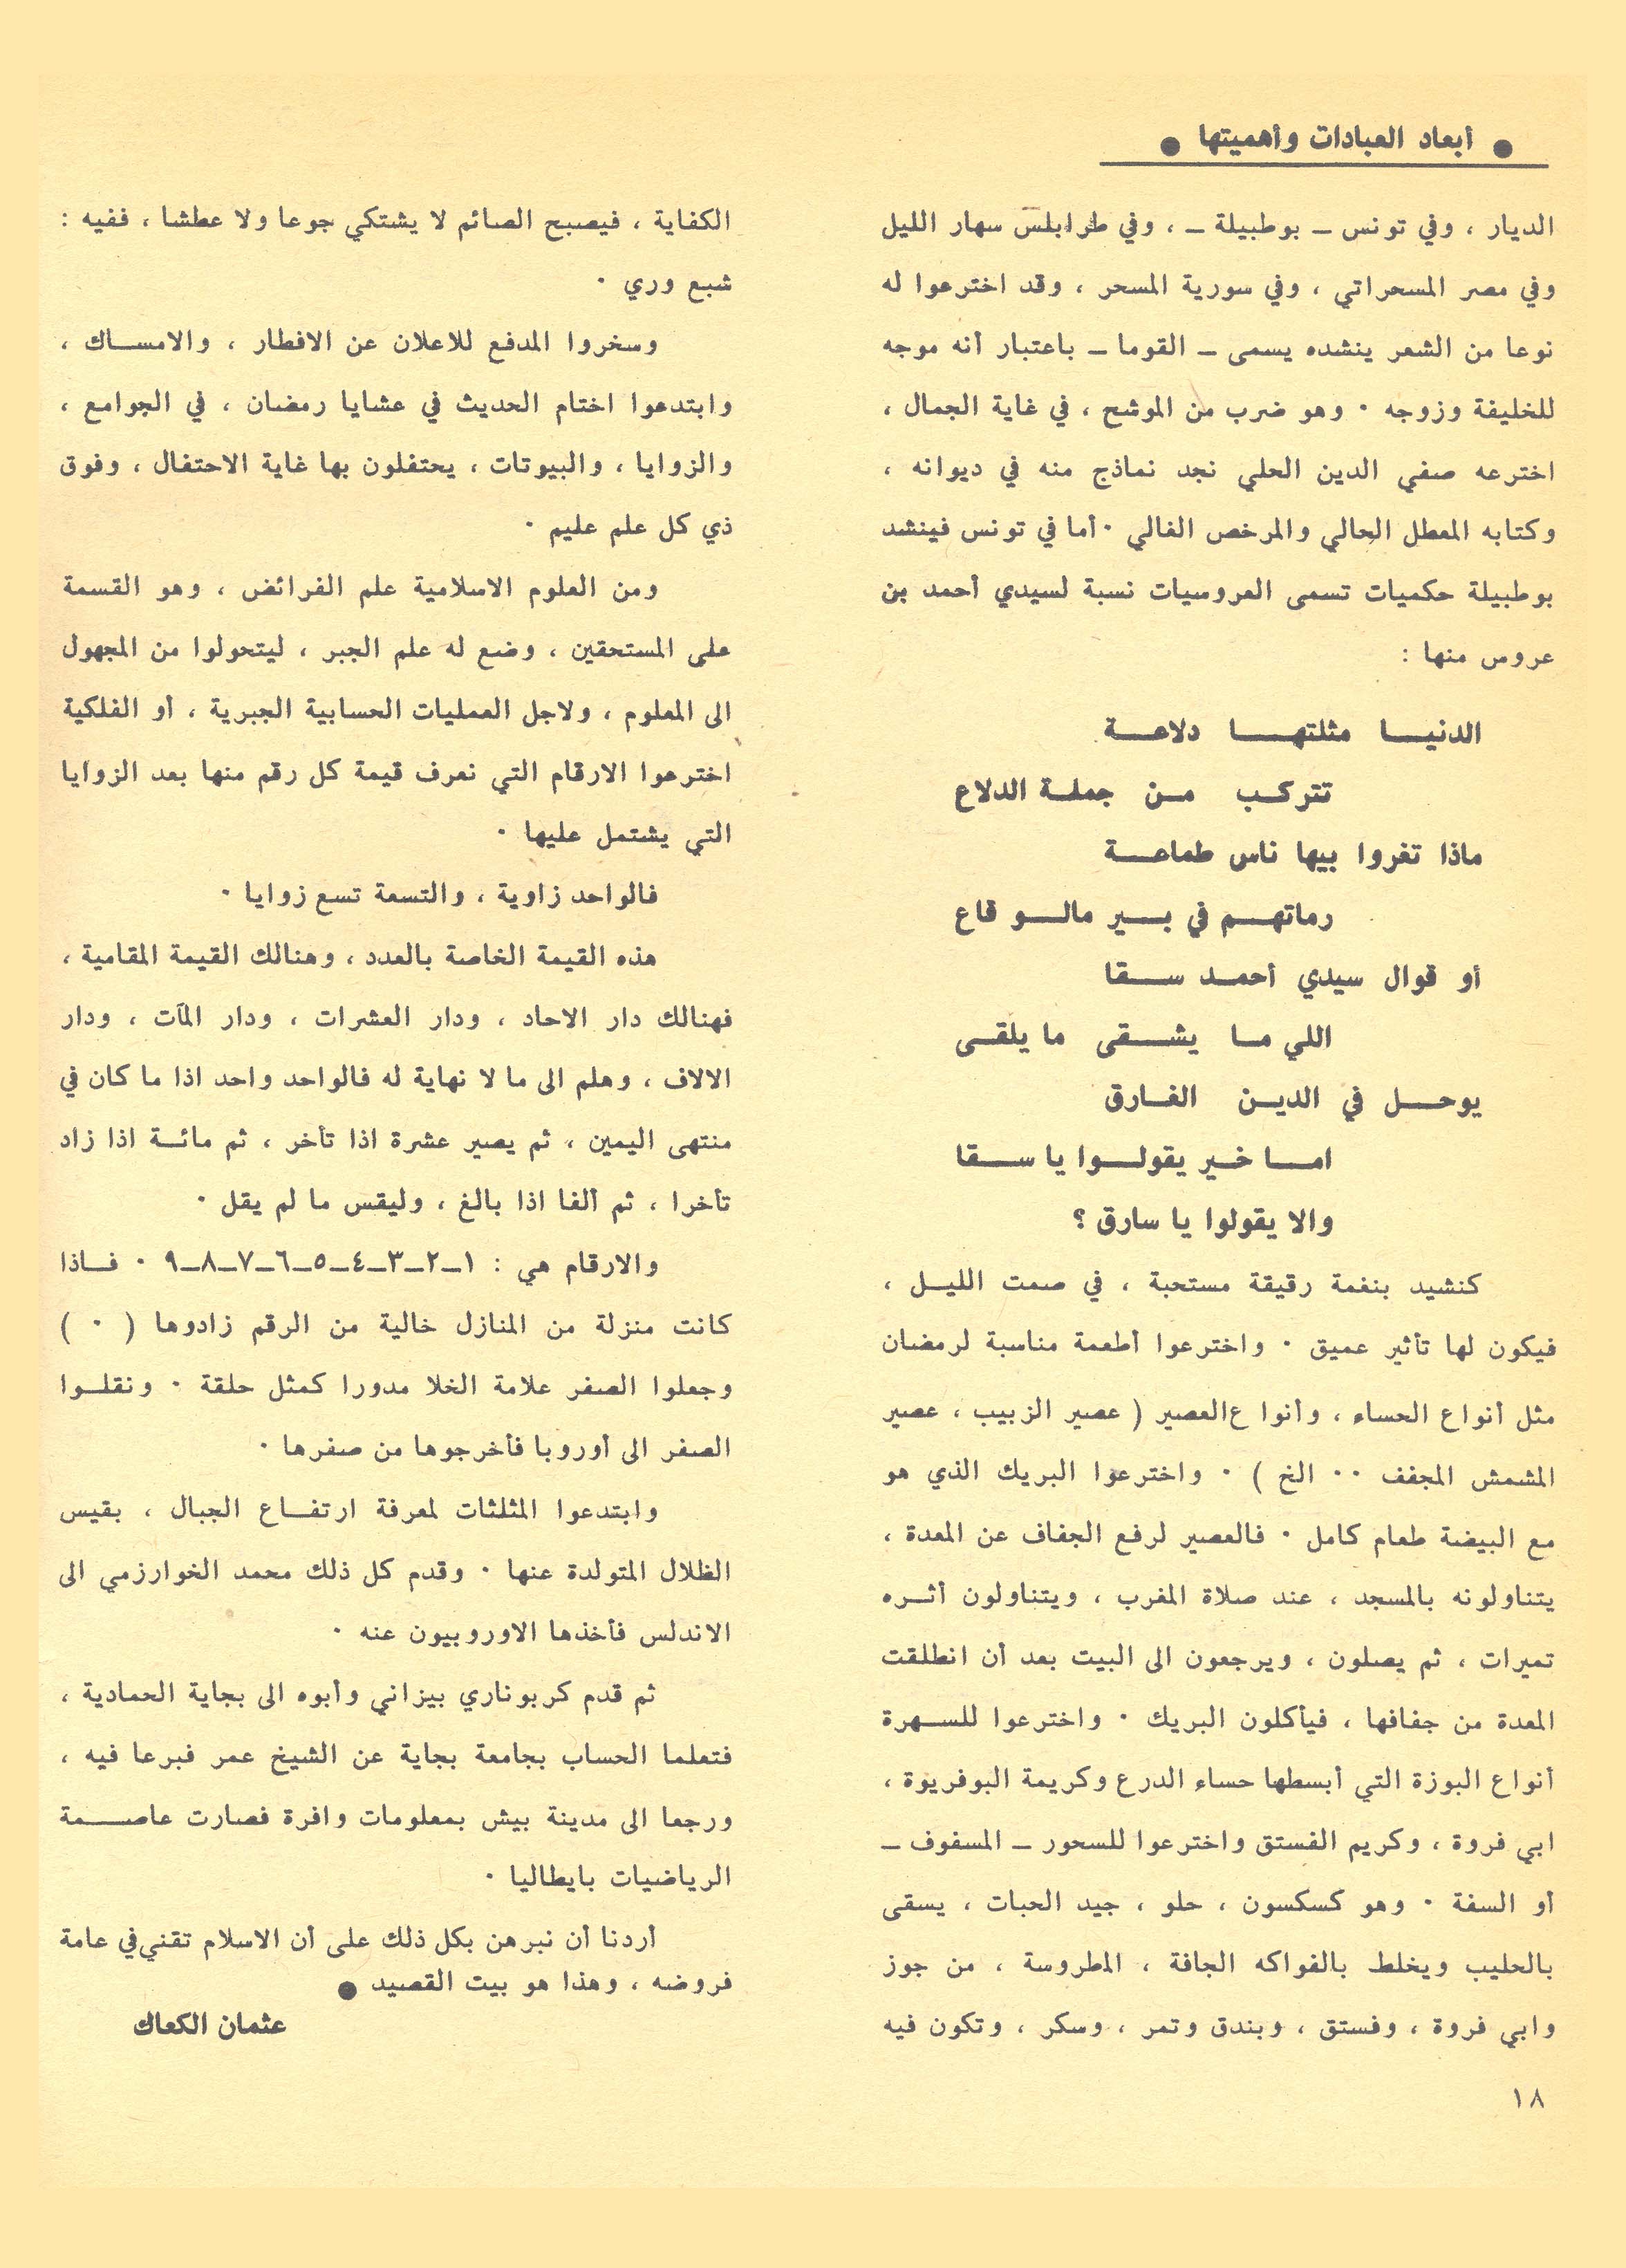 ● أبعاد العبادات وأهميتها ●
الديار ، وفي تونس ــ بوطبيلة ــ ، وفي طرابلس سهار الليل
وفي مصر المسحراتي ، وفي سورية المسحر ، وقد اخترعوا له
نوعا من الشعر ينشده يسمى ــ القوما ــ باعتبار أنه موجه
للخليفة وزوجه ٠ وهو ضرب من الموشح ، في غاية الجمال ،
اخترعه صفي الدين الحلي نجد نماذج منه في ديوانه ،
وكتابه المعطل الحالي والمرخص الغالي ٠ أما في تونس فينشد
بوطبيلة حكميات تسمى العروسيات نسبة لسيدي أحمد بن
عروس منها :
الدنيــا مثلتهــا دلاعــة
تتركـب مـن جملـة الدلاع
ماذا تغروا بيها ناس طماعــة
رماتهـم في بـير مالـو قاع
أو قوال سيدي أحمـد سـقا
اللي مـا يشـقى ما يلقـى
يوحـل في الديـن الغـارق
امـا خـير يقولـوا يا سـقا
والا يقولوا يا سارق ؟
كنشيد بنغمة رقيقة مستحبة ، في صمت الليـل ،
فيكون لها تأثير عميق ٠ واخترعوا أطعمة مناسبة لرمضان
مثل أنواع الحساء ، وأنوا ع العصير ( عصير الزبيب ، عصير
المشمش المجفف ٠٠ الخ ) ٠ واخترعوا البريك الذي هو
مع البيضة طعام كامل ٠ فالعصير لرفع الجفاف عن المعدة ،
يتناولونه بالمسجد ، عند صلاة المغرب ، ويتناولون أثـره
تميرات ، ثم يصلون ، ويرجعون الى البيت بعد أن انطلقت
المعدة من جفافها ، فيأكلون البريك ٠ واخترعوا للسـهرة
أنواع البوزة التي أبسطها حساء الدرع وكريمة البوفريوة ،
ابي فروة ، وكريم الفستق واخترعوا للسحور ــ المسفوف ــ
أو السفة ٠ وهو كسكسون ، حلو ، جيد الحبات ، يسقى
بالحليب ويخلط بالفواكه الجافة ، المطروسة ، من جوز
وابي فروة ، وفستق ، وبندق وتمر ، وسكر ، وتكون فيه
١٨
الكفاية ، فيصبح الصائم لا يشتكي جوعا ولا عطشا ، ففيه :
شبع وري ٠
وسخروا المدفع للاعلان عن الافطار ، والامسـاك ،
وابتدعوا اختام الحديث في عشايا رمضان ، في الجوامع ،
والزوايا ، والبيوتات ، يحتفلون بها غاية الاحتفال ، وفوق
ذي كل علم عليم ٠
ومن العلوم الاسلامية علم الفرائض ، وهو القسمة
على المستحقين ، وضع له علم الجبر ، ليتحولوا من المجهول
الى المعلوم ، ولاجل العمليات الحسابية الجبرية ، أو الفلكية
اخترعوا الارقام التي نعرف قيمة كل رقم منها بعد الزوايا
التي يشتمل عليها ٠
فالواحد زاوية ، والتسعة تسع زوايا ٠
هذه القيمة الخاصة بالعدد ، وهنالك القيمة المقامية ،
فهنالك دار الاحاد ، ودار العشرات ، ودار المآت ، ودار
الالاف ، وهلم الى ما لا نهاية له فالواحد واحد اذا ما كان في
منتهى اليمين ، ثم يصير عشرة اذا تأخر ، ثم مائـة اذا زاد
تأخرا ، ثم ألفا اذا بالغ ، وليقس ما لم يقل ٠
والارقام هي : ١ــ٢ــ٣ــ٤ــ٥ــ٦ــ٧ــ٨ــ٩ ٠ فـاذا
كانت منزلة من المنازل خالية من الرقم زادوها ( ٠ )
وجعلوا الصفر علامة الخلا مدورا كمثل حلقة ٠ ونقلـوا
الصفر الى أوروبا فأخرجوها من صفرها ٠
وابتدعوا المثلثات لمعرفة ارتفـاع الجبال ، بقيس
الظلال المتولدة عنها ٠ وقدم كل ذلك محمد الخوارزمي الى
الاندلس فأخذها الاوروبيون عنه ٠
ثم قدم كربوناري بيزاني وأبوه الى بجاية الحمادية ،
فتعلما الحساب بجامعة بجاية عن الشيخ عمر فبرعا فيه ،
ورجعا الى مدينة بيش بمعلومات وافرة فصارت عاصـمة
الرياضيات بايطاليا ٠
أردنا أن نبرهن بكل ذلك على أن الاسلام تقني في عامة
فروضه ، وهذا هو بيت القصيد ●
عثمان الكعاك